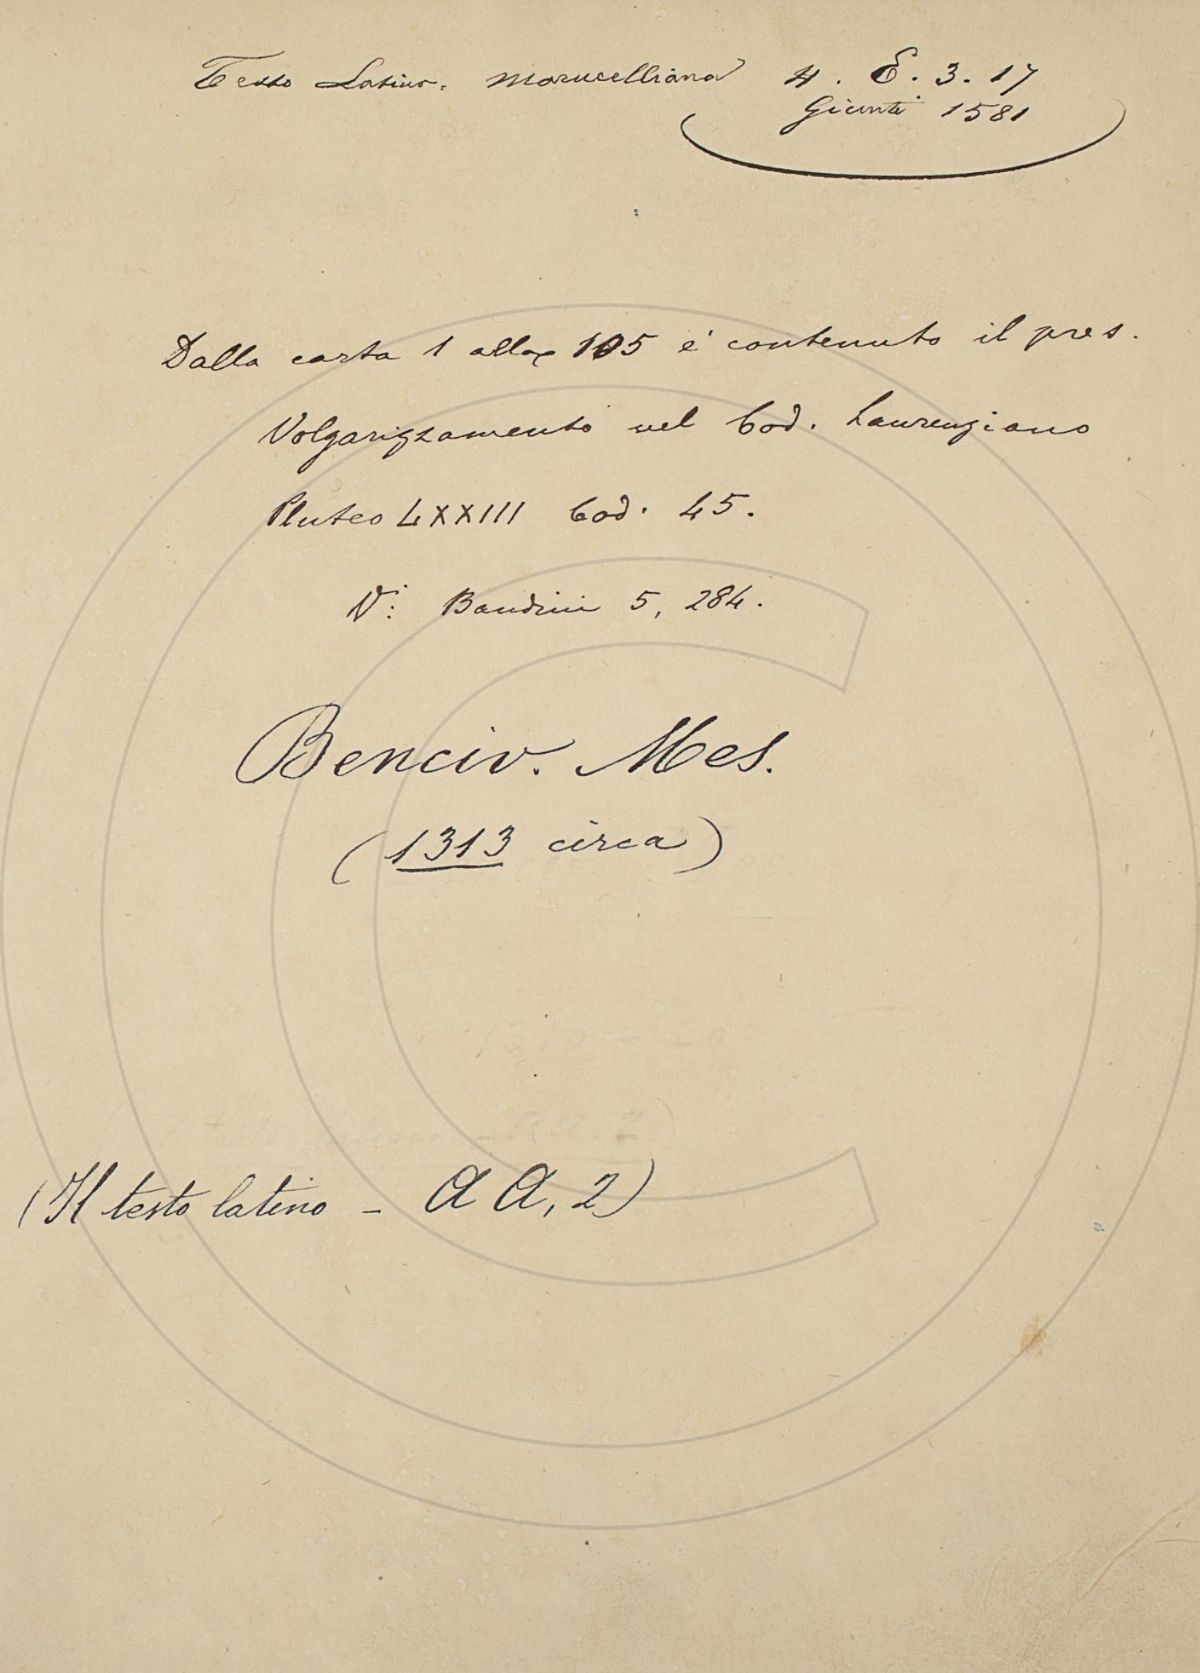 Testo Latino. Marucelliana 4. E. 3. 17
Giunti 1581
Dalla carta 1 alla 105 è contenuto il pres.
Volgarizzamento nel Cod. Laurenziano
Pluteo LXXIII Cod. 45.
V: Bandini 5, 284.
Benciv. Mes.
(1313 circa)
(Il testo latino - A A, 2)